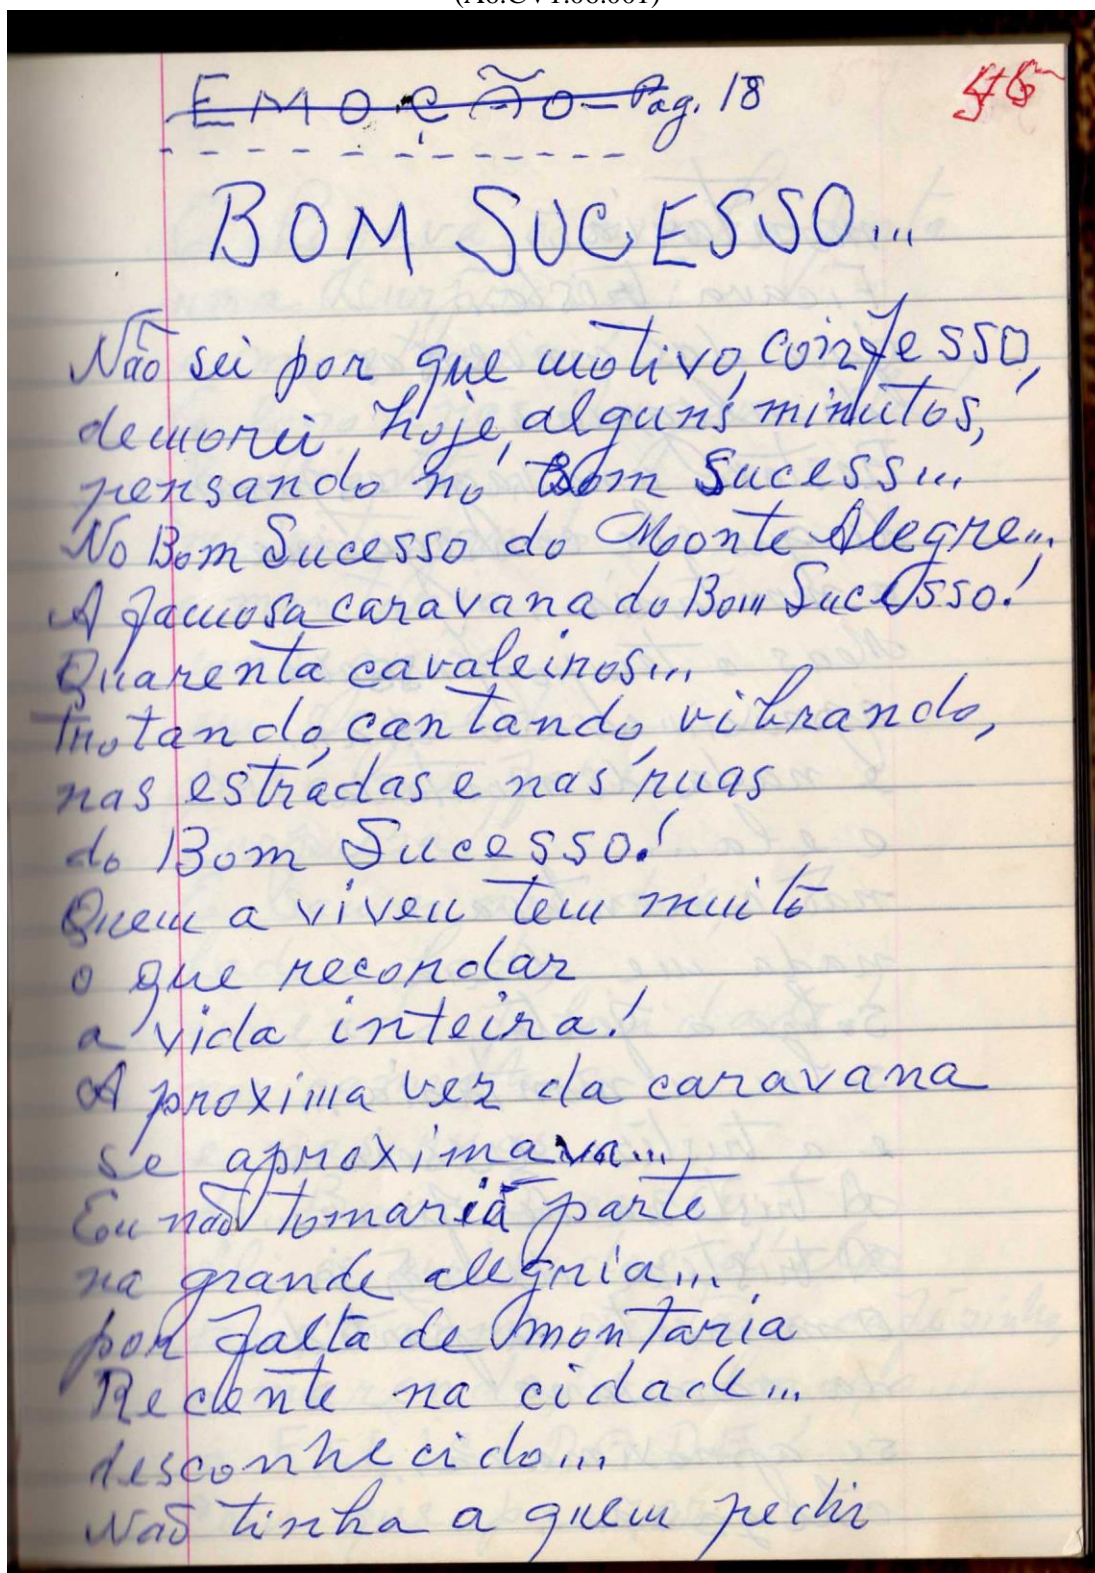 EMOÇÃO - Pag. 18
BOM SUCESSO...
Não sei por que motivo, confesso,
demorei hoje, alguns minutos,
pensando no Bom Sucess...
No Bom Sucesso do Monte Alegre...
A famosa caravana do Bom Sucesso!
Quarenta cavaleiros...
trotando, cantando, vibrando,
nas estradas e nas ruas
do Bom Sucesso!
Quem a viveu tem muito
o que recordar
a vida inteira!
A proxima vez da caravana
se aproximava...
Eu não tomaria parte
na grande alegria...
por falta de montaria
Recente na cidade...
desconhecido...
Não tinha a quem pedir